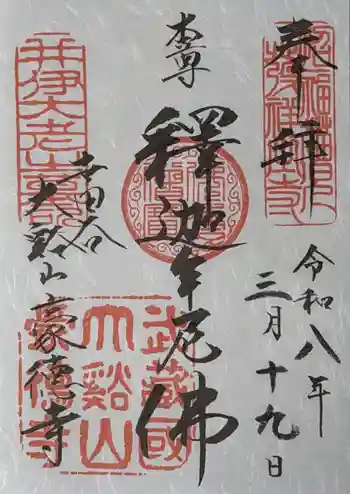 奉拝
令和八年
三月十九日
本尊
釋迦牟尼佛
世田谷
大谿山豪徳寺
井伊大老山墓所
武蔵國
大谿山
豪徳寺